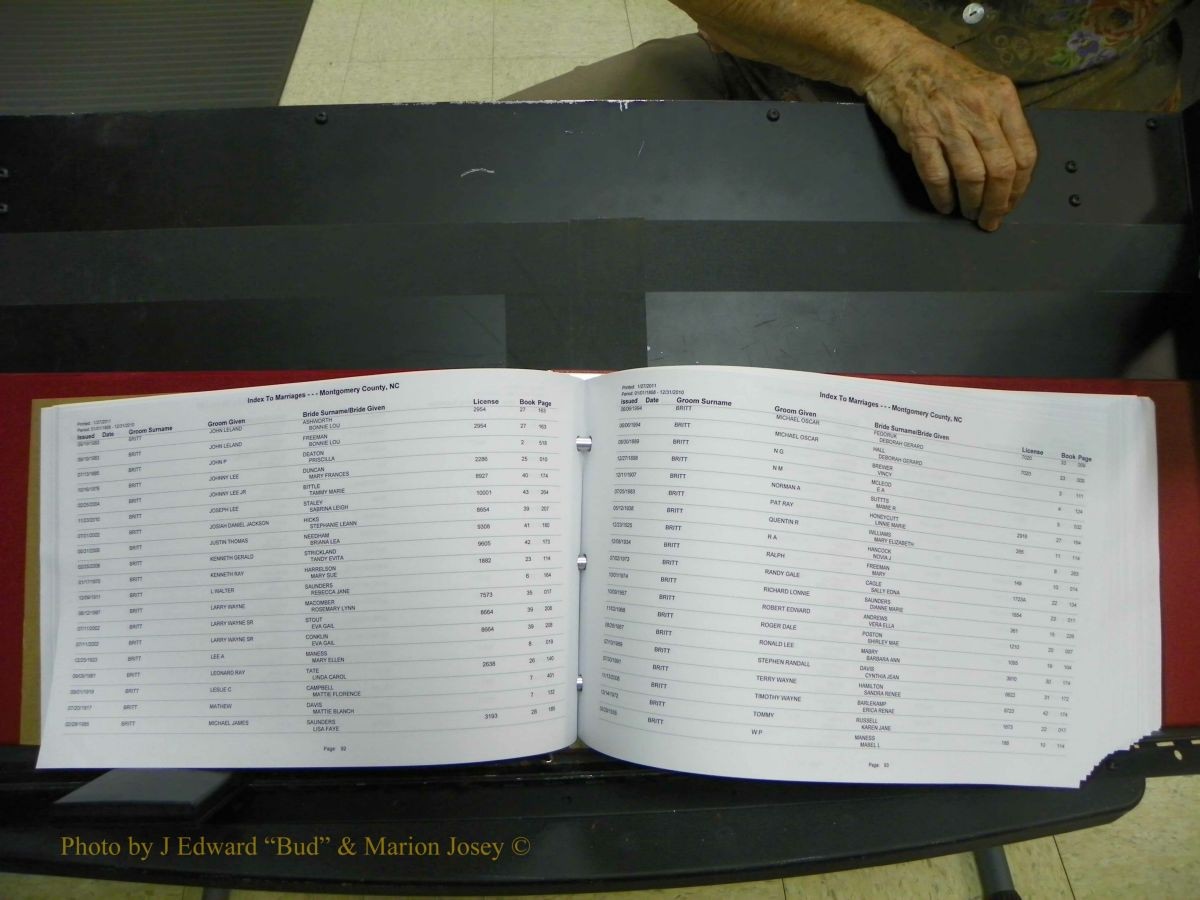 Index To Marriages - - - Montgomery County, NC
Printed: 1/27/2011
Period: 01/01/1868 - 12/31/2010
Issued Date Groom Surname Groom Given Bride Surname/Bride Given License Book Page
BRITT JOHN LELAND ASHWORTH 2954 27 163
BONNIE LOU
BRITT JOHN LELAND FREEMAN 2954 27 163
BONNIE LOU
BRITT JOHN P DEATON 2 518
PRISCILLA
BRITT JOHNNY LEE DUNCAN 2286 25 010
MARY FRANCES
BRITT JOHNNY LEE JR BITTLE 8927 40 174
TAMMY MARIE
BRITT JOSEPH LEE STALEY 10001 43 264
SABRINA LEIGH
BRITT JOSIAH DANIEL JACKSON HICKS 8654 39 207
STEPHANIE LEANN
BRITT JUSTIN THOMAS NEEDHAM 9308 41 180
BRIANA LEA
BRITT KENNETH GERALD STRICKLAND 9605 42 173
TANDY EVITA
BRITT KENNETH RAY HARRELSON 1882 23 114
MARY SUE
BRITT L WALTER SAUNDERS 6 164
REBECCA JANE
BRITT LARRY WAYNE MACOMBER 7573 35 017
ROSEMARY LYNN
BRITT LARRY WAYNE SR STOUT 8664 39 208
EVA GAIL
07/11/2002 BRITT LARRY WAYNE SR CONKLIN 8664 39 208
EVA GAIL
12/25/1920 BRITT LEE A MANESS 8 018
MARY ELLEN
BRITT LEONARD RAY TATE 2638 26 140
LINDA CAROL
09/01/1919 BRITT LESLIE C CAMPBELL 7 401
MATTIE FLORENCE
07/20/1917 BRITT MATHEW DAVIS 7 132
MATTIE BLANCH
02/28/1985 BRITT MICHAEL JAMES SAUNDERS 3193 28 186
LISA FAYE
Page 92
Printed: 1/27/2011
Period: 01/01/1868 - 12/31/2010
Index To Marriages - - - Montgomery County, NC
Issued Date Groom Surname Groom Given Bride Surname/Bride Given License Book Page
06/06/1994 BRITT MICHAEL OSCAR FEDORUK 7020 33 009
DEBORAH GERARD
06/06/1994 BRITT MICHAEL OSCAR HALL 7020 33 009
DEBORAH GERARD
BRITT N G BREWER 3 111
VINCY
12/27/1898 BRITT N M MCLEOD 4 124
E A
12/11/1907 BRITT NORMAN A SUTTTS 5 032
MAMIE R
BRITT PAT RAY HONEYCUTT 2918 27 164
LINNIE MARIE
BRITT QUENTIN R WILLIAMS 265 11 114
MARY ELIZABETH
12/23/1925 BRITT R A HANCOCK 8 263
NOVIA J
BRITT RALPH FREEMAN 149 10 014
MARY
07/02/1973 BRITT RANDY GALE CAGLE 1723A 22 134
SALLY EDNA
BRITT RICHARD LONNIE SAUNDERS 1854 23 011
DIANNE MARIE
BRITT ROBERT EDWARD ANDREWS 361 18 229
VERA ELLA
BRITT ROGER DALE POSTON 1210 20 007
SHIRLEY MAE
BRITT RONALD LEE MABRY 1095 19 104
BARBARA ANN
BRITT STEPHEN RANDALL DAVIS 3610 30 174
CYNTHIA JEAN
BRITT TERRY WAYNE HAMILTON 6622 31 172
SANDRA RENEE
BRITT TIMOTHY WAYNE BARLEKAMP 9723 42 174
ERICA RENAE
12/14/1972 BRITT TOMMY RUSSELL 1673 22 017
KAREN JANE
BRITT W P MANESS 186 10 114
MABEL L
Page 93
Photo by J Edward “Bud” & Marion Josey ©